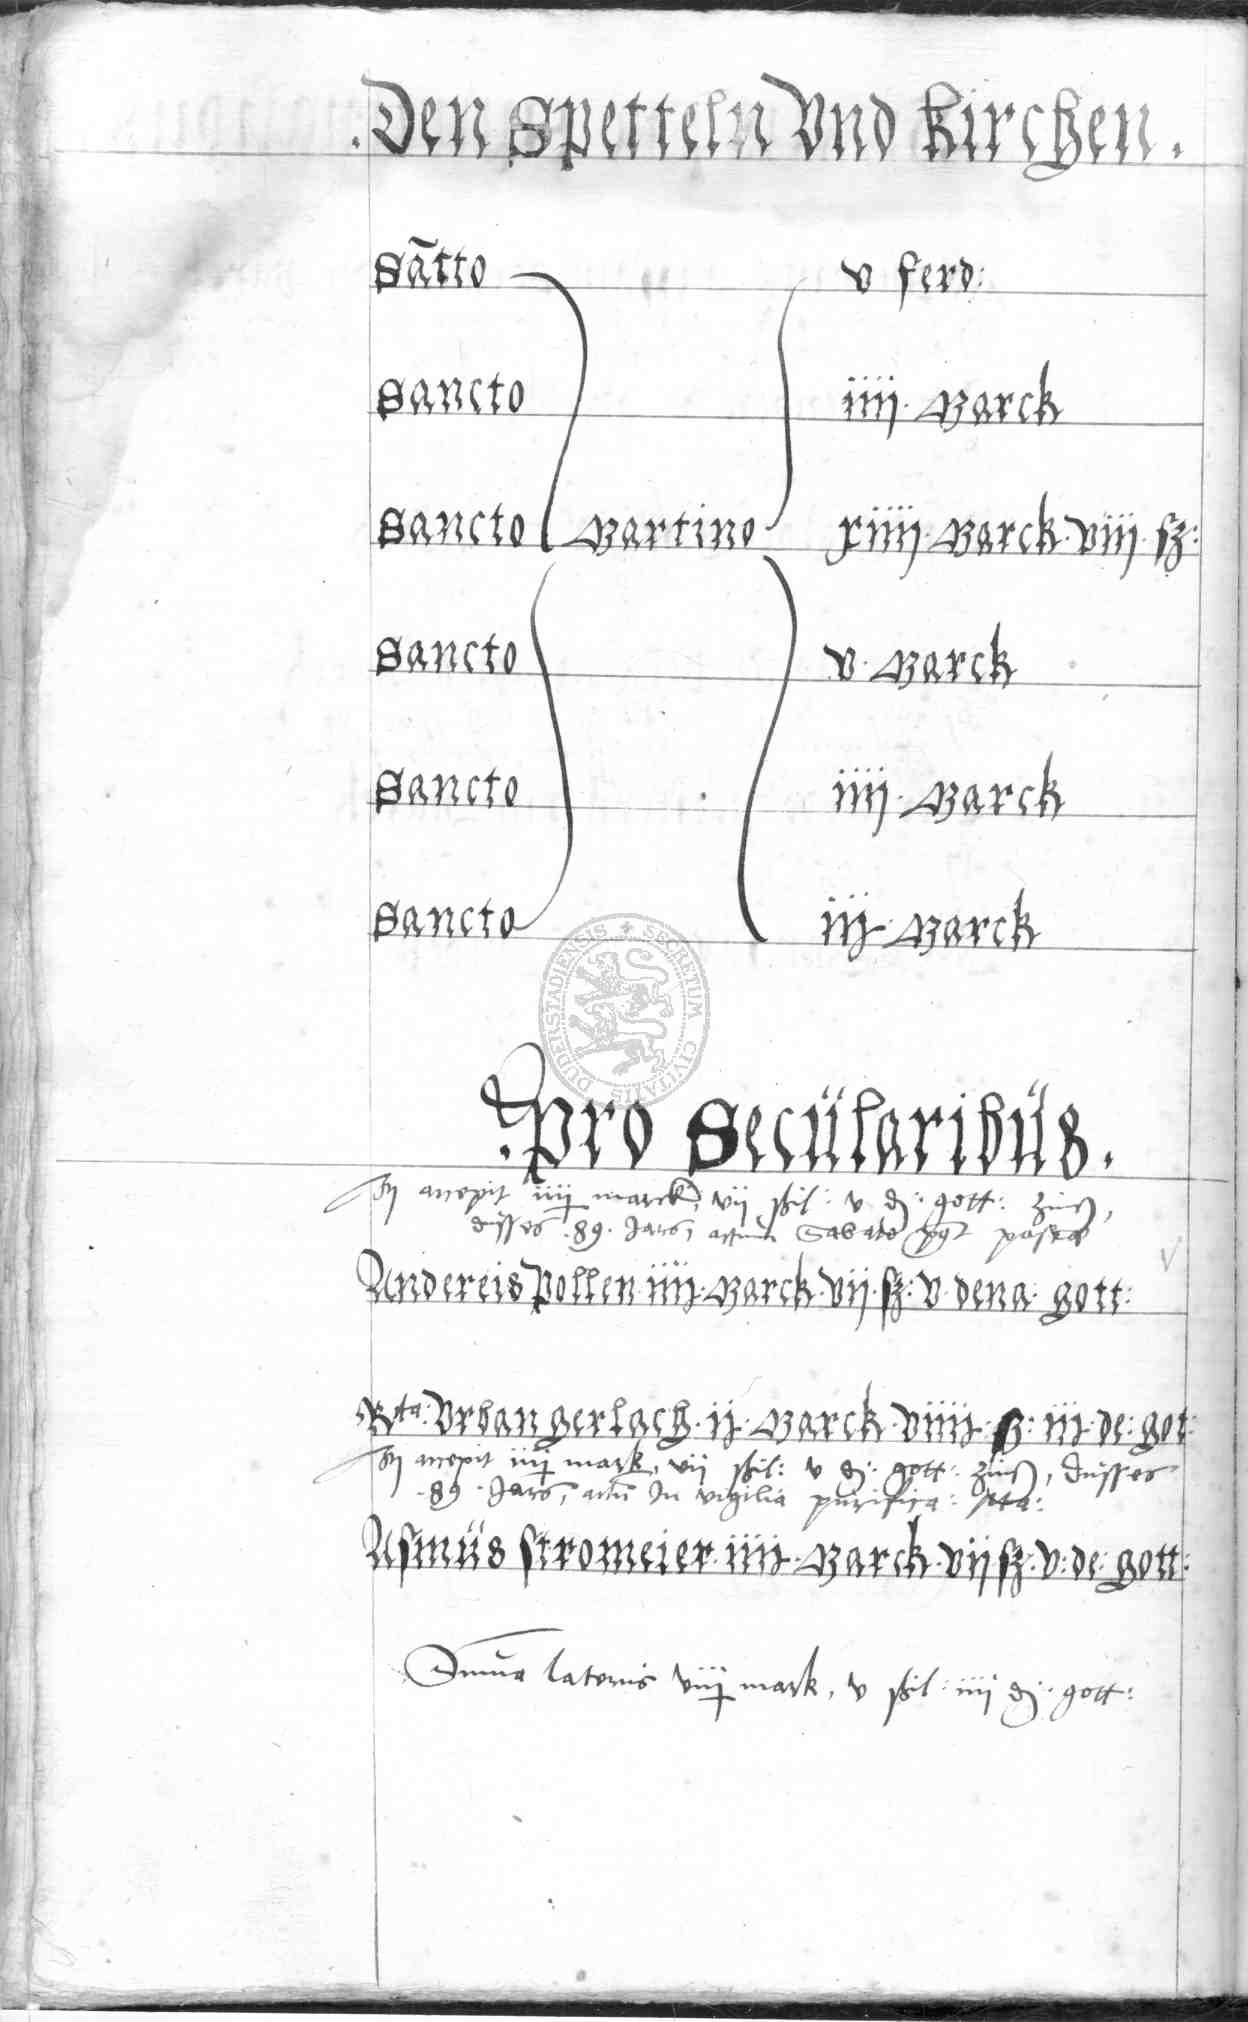 .Den Spetteln Vnd Kirchen.
Sãtto v ferd:
Sancto iiij. Marck
Sancto Martino xiiij. Marck. viij. sz:
Sancto v. Marck
Sancto iiij. Marck
Sancto iij. Marck
SECRETUM CIVITATIS DUDERSTADIENSIS
.Pro Secülaribüs.
accepit iiij marck, vij ßil: v d: gott: zinß,
disses .89. Jars, actum Sabato post pascæ
Andereis Pollen iiij. Marck. vij. sz: v. dena gott:
Rta: Vrban gerlach. ij. Marck. viiij. ß: iij. de: got:
accepit iiij mark, vij ßil: v d: gott: zinß, disses
.89. Jars, actũ In vigilia purifica:
Asmüs stromeier. iiij. Marck. vij sz: v: de: gott:
Sum̃a lateris viij mark, v ßil: iiij d: gott: